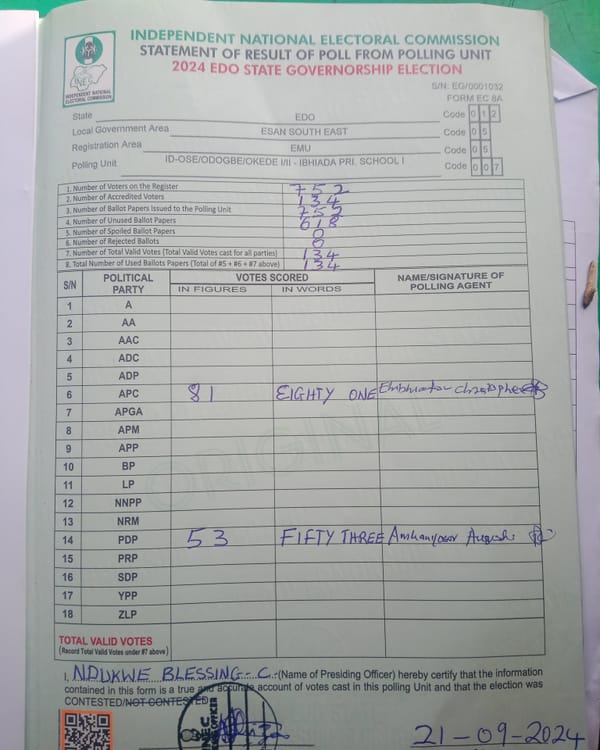 INDEPENDENT NATIONAL ELECTORAL COMMISSION
STATEMENT OF RESULT OF POLL FROM POLLING UNIT
2024 EDO STATE GOVERNORSHIP ELECTION
INEC
INDEPENDENT NATIONAL
ELECTORAL COMMISSION
S/N: EG/0001032
FORM EC 8A
State EDO Code 0 1 2
Local Government Area ESAN SOUTH EAST Code 0 5
Registration Area EMU Code 0 5
Polling Unit ID-OSE/ODOGBE/OKEDE I/II - IBHIADA PRI. SCHOOL I Code 0 0 7
1. Number of Voters on the Register 752
2. Number of Accredited Voters 134
3. Number of Ballot Papers Issued to the Polling Unit 752
4. Number of Unused Ballot Papers 618
5. Number of Spoiled Ballot Papers 0
6. Number of Rejected Ballots 0
7. Number of Total Valid Votes (Total Valid Votes cast for all parties) 134
8. Total Number of Used Ballots Papers (Total of #5 + #6 + #7 above) 134
S/N POLITICAL PARTY VOTES SCORED NAME/SIGNATURE OF POLLING AGENT
IN FIGURES IN WORDS
1 A
2 AA
3 AAC
4 ADC
5 ADP
6 APC 81 EIGHTY ONE
7 APGA
8 APM
9 APP
10 BP
11 LP
12 NNPP
13 NRM
14 PDP 53 FIFTY THREE
15 PRP
16 SDP
17 YPP
18 ZLP
TOTAL VALID VOTES
(Record Total Valid Votes under #7 above)
I, NDUKWE BLESSING - C. (Name of Presiding Officer) hereby certify that the information
contained in this form is a true and accurate account of votes cast in this polling Unit and that the election was
CONTESTED/NOT CONTESTED
21-09-2024